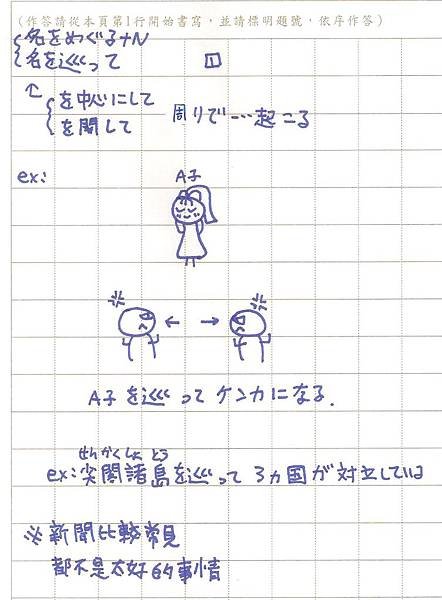 (作答請從本頁第1行開始書寫，並請標明題號，依序作答)
名をめぐる+N
名を巡って 1
↑ を中心にして
を関して 周りで…起こる
ex:
A子
← →
A子を巡ってケンカになる.
せんかくしょとう
ex:尖閣諸島を巡って 3ヵ国が対立している
※新聞比較常見
都不是太好的事情